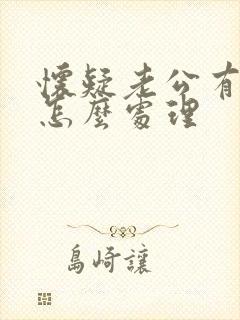 懷疑老公有
怎麼處理
島崎讓